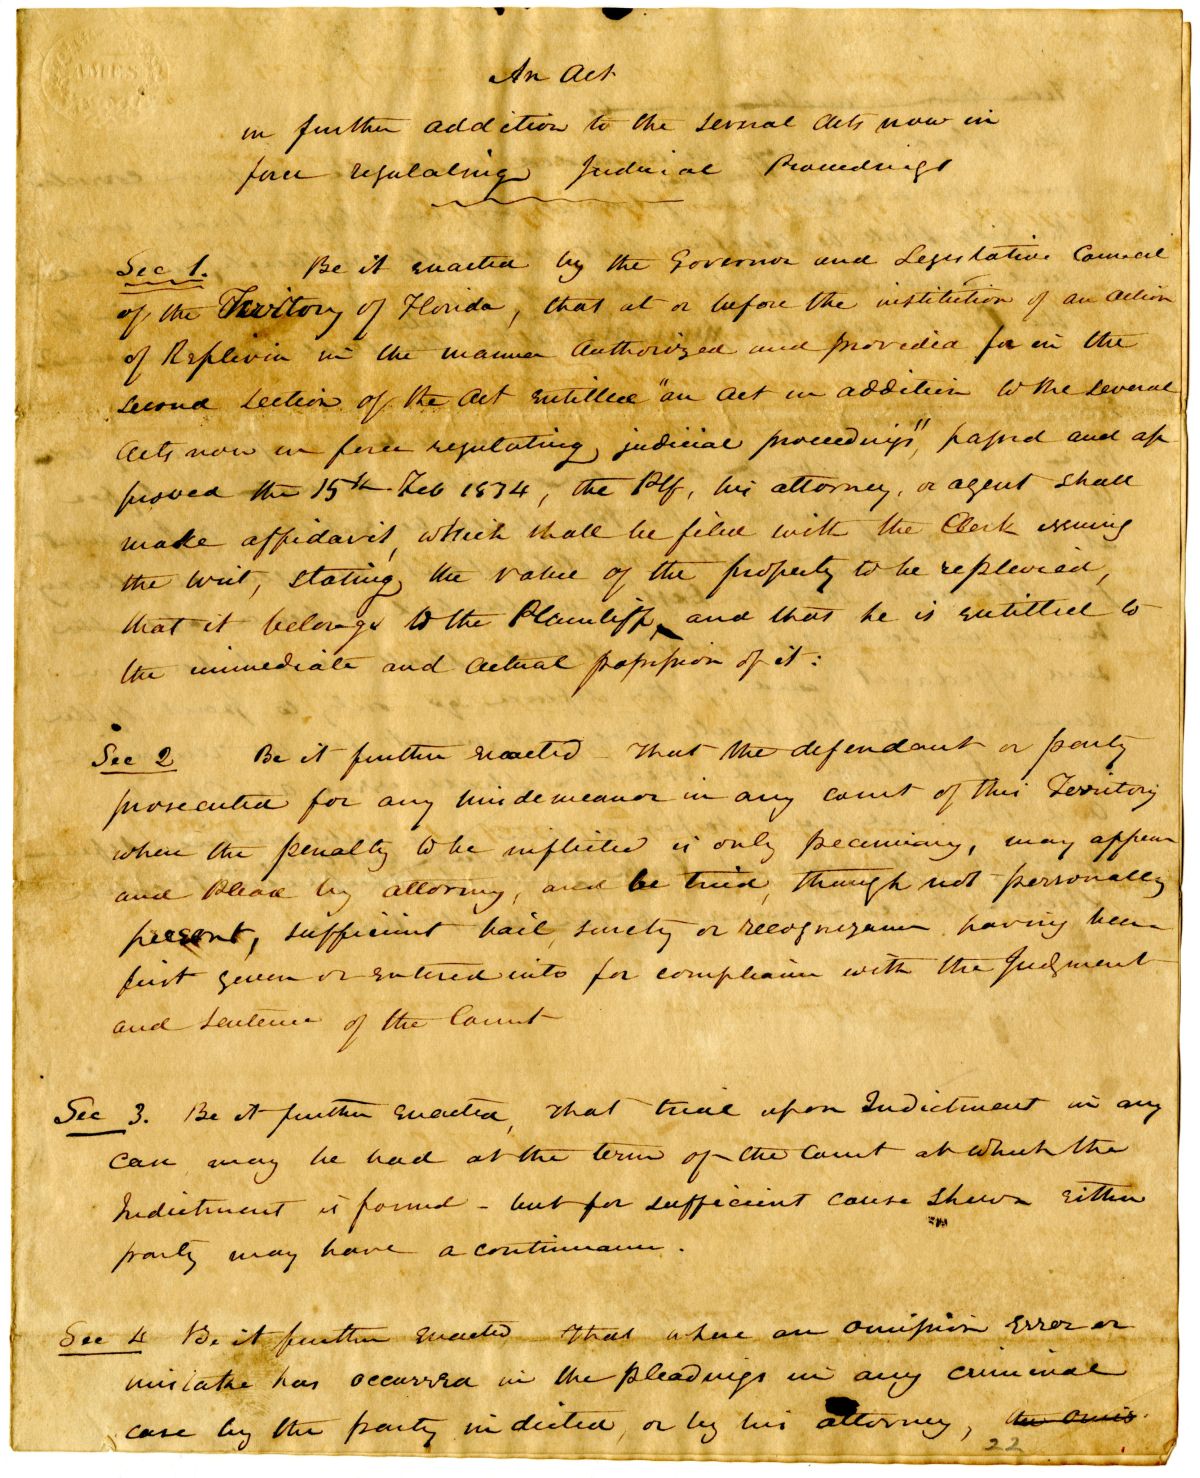 AMES
An Act
in further addition to the several Acts now in
force regulating Judicial Proceedings
Sec 1. Be it enacted by the Governor and Legislative Council
of the Territory of Florida, that at or before the institution of an action
of Replevin in the manner authorized and provided for in the
second section of the Act entitled "an Act in addition to the several
Acts now in force regulating judicial proceedings", passed and ap-
proved the 15th Feb 1834, the Plf, his attorney, or agent shall
make affidavit, which shall be filed with the Clerk issuing
the writ, stating the value of the property to be replevied,
that it belongs to the Plaintiff, and that he is entitled to
the immediate and actual possession of it:
Sec 2 Be it further enacted That the defendant or party
prosecuted for any misdemeanor in any court of this Territory
where the penalty to be inflicted is only pecuniary, may appear
and plead by attorney, and be tried, though not personally
present, sufficient bail, surety or recognizance having been
first given or entered into for compliance with the Judgment
and sentence of the Court
Sec 3. Be it further enacted, That trial upon Indictment in any
case may be had at the term of the Court at which the
Indictment is found - but for sufficient cause shewn either
party may have a continuance.
Sec 4 Be it further enacted That where an omission error or
mistake has occurred in the pleadings in any criminal
case by the party indicted, or by his attorney, the omis
22